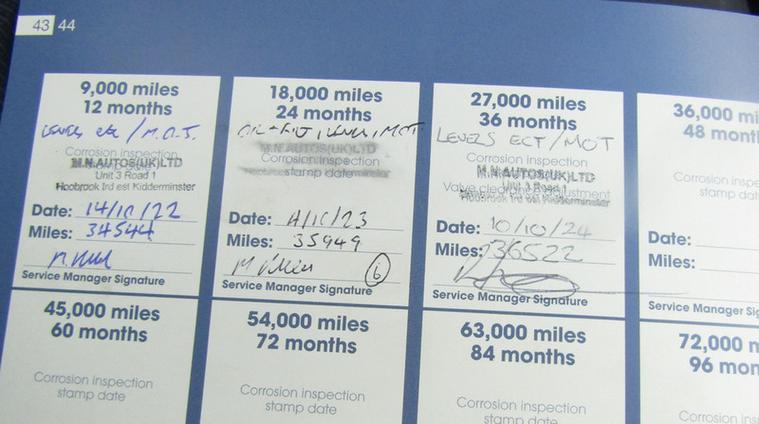 43 44
9,000 miles
12 months
LEVELS etc / M.O.T.
Corrosion inspection
M.N.AUTOS(UK)LTD
Unit 3 Road 1
Hoobrook Ird est Kidderminster
Date: 14/10/22
Miles: 34544
Service Manager Signature
18,000 miles
24 months
MOT
M.N.AUTOS(UK)LTD
Corrosion inspection
stamp date
Date:
Miles: 35949
6
Service Manager Signature
27,000 miles
36 months
LEVELS ECT/MOT
Corrosion inspection
M.N.AUTOS(UK)LTD
Unit 3 Road 1
Valve clearance adjustment
Hoobrook Ird est Kidderminster
Date: 10/10/24
Miles: 36522
Service Manager Signature
36,000 mi
48 mont
Corrosion inspe
stamp da
Date:
Miles:
Service Manager Sig
45,000 miles
60 months
Corrosion inspection
stamp date
54,000 miles
72 months
Corrosion inspection
stamp date
63,000 miles
84 months
Corrosion inspection
stamp date
72,000 m
96 mon
Corrosion insp